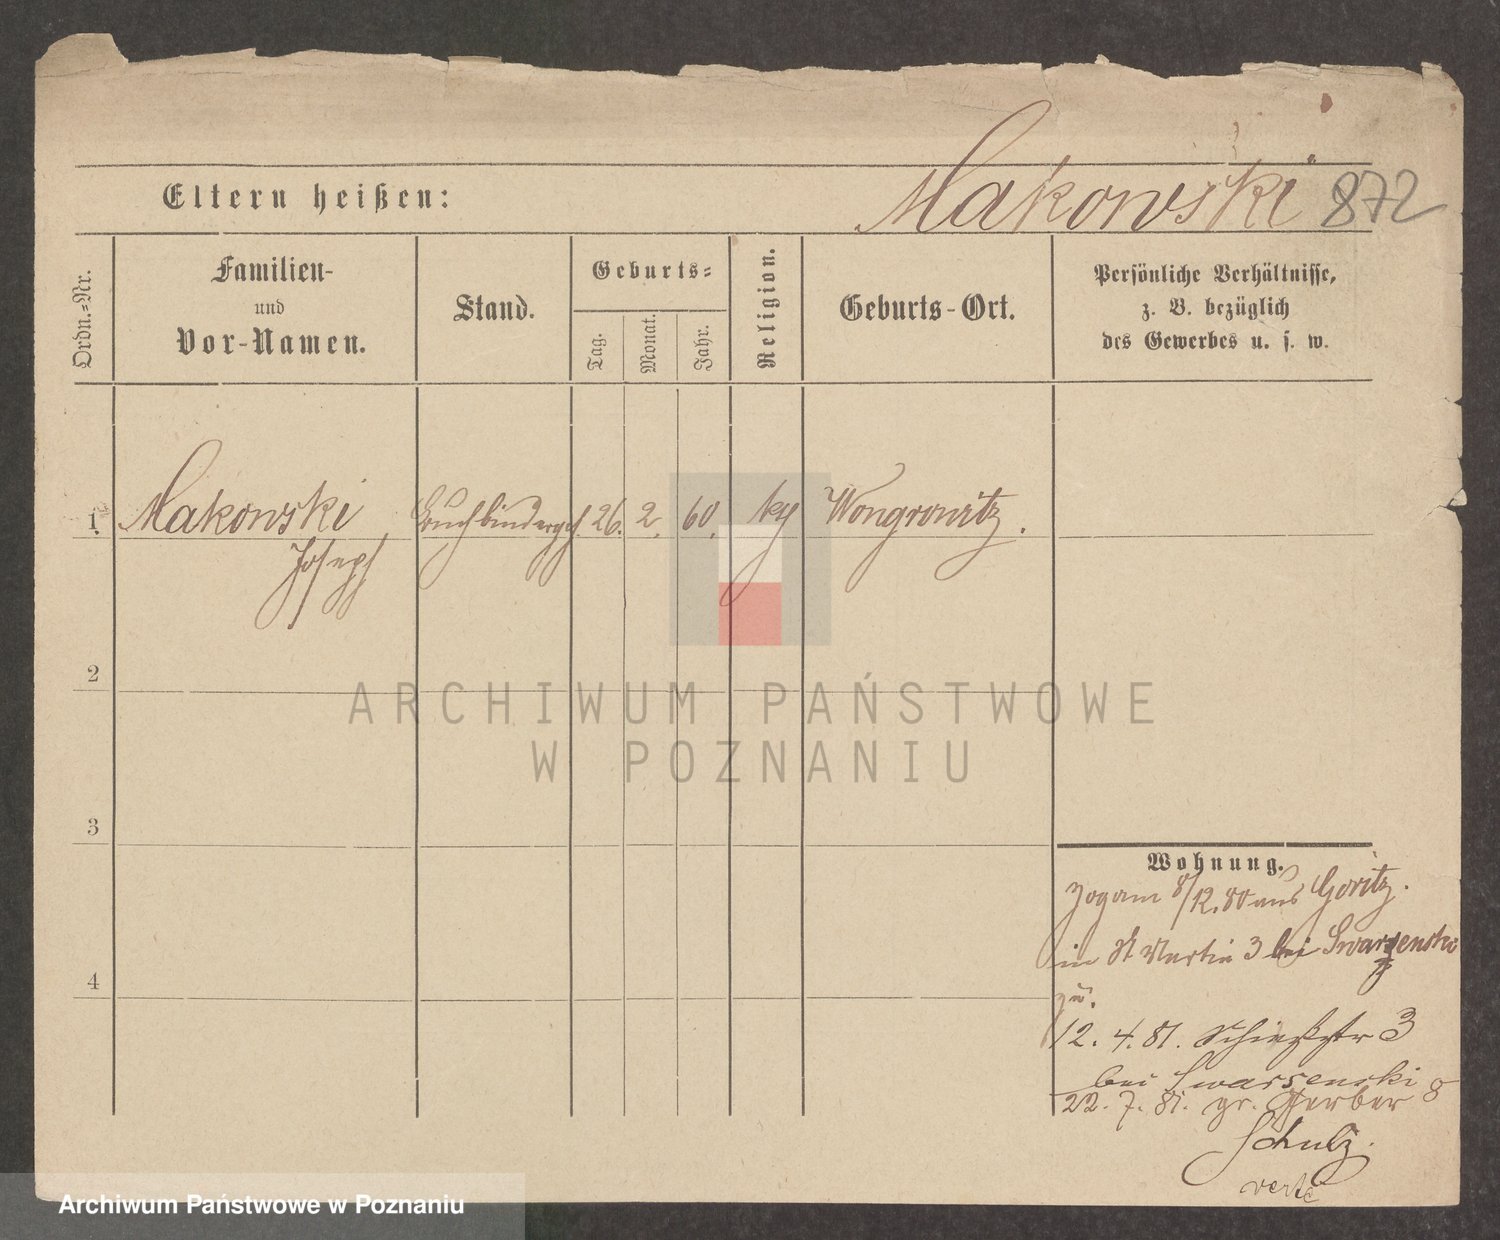 Makowski 872
Eltern heißen:
Ordn.-Nr.
Familien-
und
Vor-Namen.
Stand.
Geburts-
Tag.
Monat.
Jahr.
Religion.
Geburts-Ort.
Persönliche Verhältnisse,
z. B. bezüglich
des Gewerbes u. s. w.
1. Makowski Buchbinderges. 26. 2. 60. kg Wongrowitz.
Joseph
2
3
4
Wohnung.
zog am 8/12.80 aus Goritz.
in St Martin 3 bei Swarzenski
zu.
12. 4. 81. Schießstr 3
bei Swarsenski
22. 7. 81. gr. Gerber 8
Schulz.
verte
ARCHIWUM PAŃSTWOWE
W POZNANIU
Archiwum Państwowe w Poznaniu